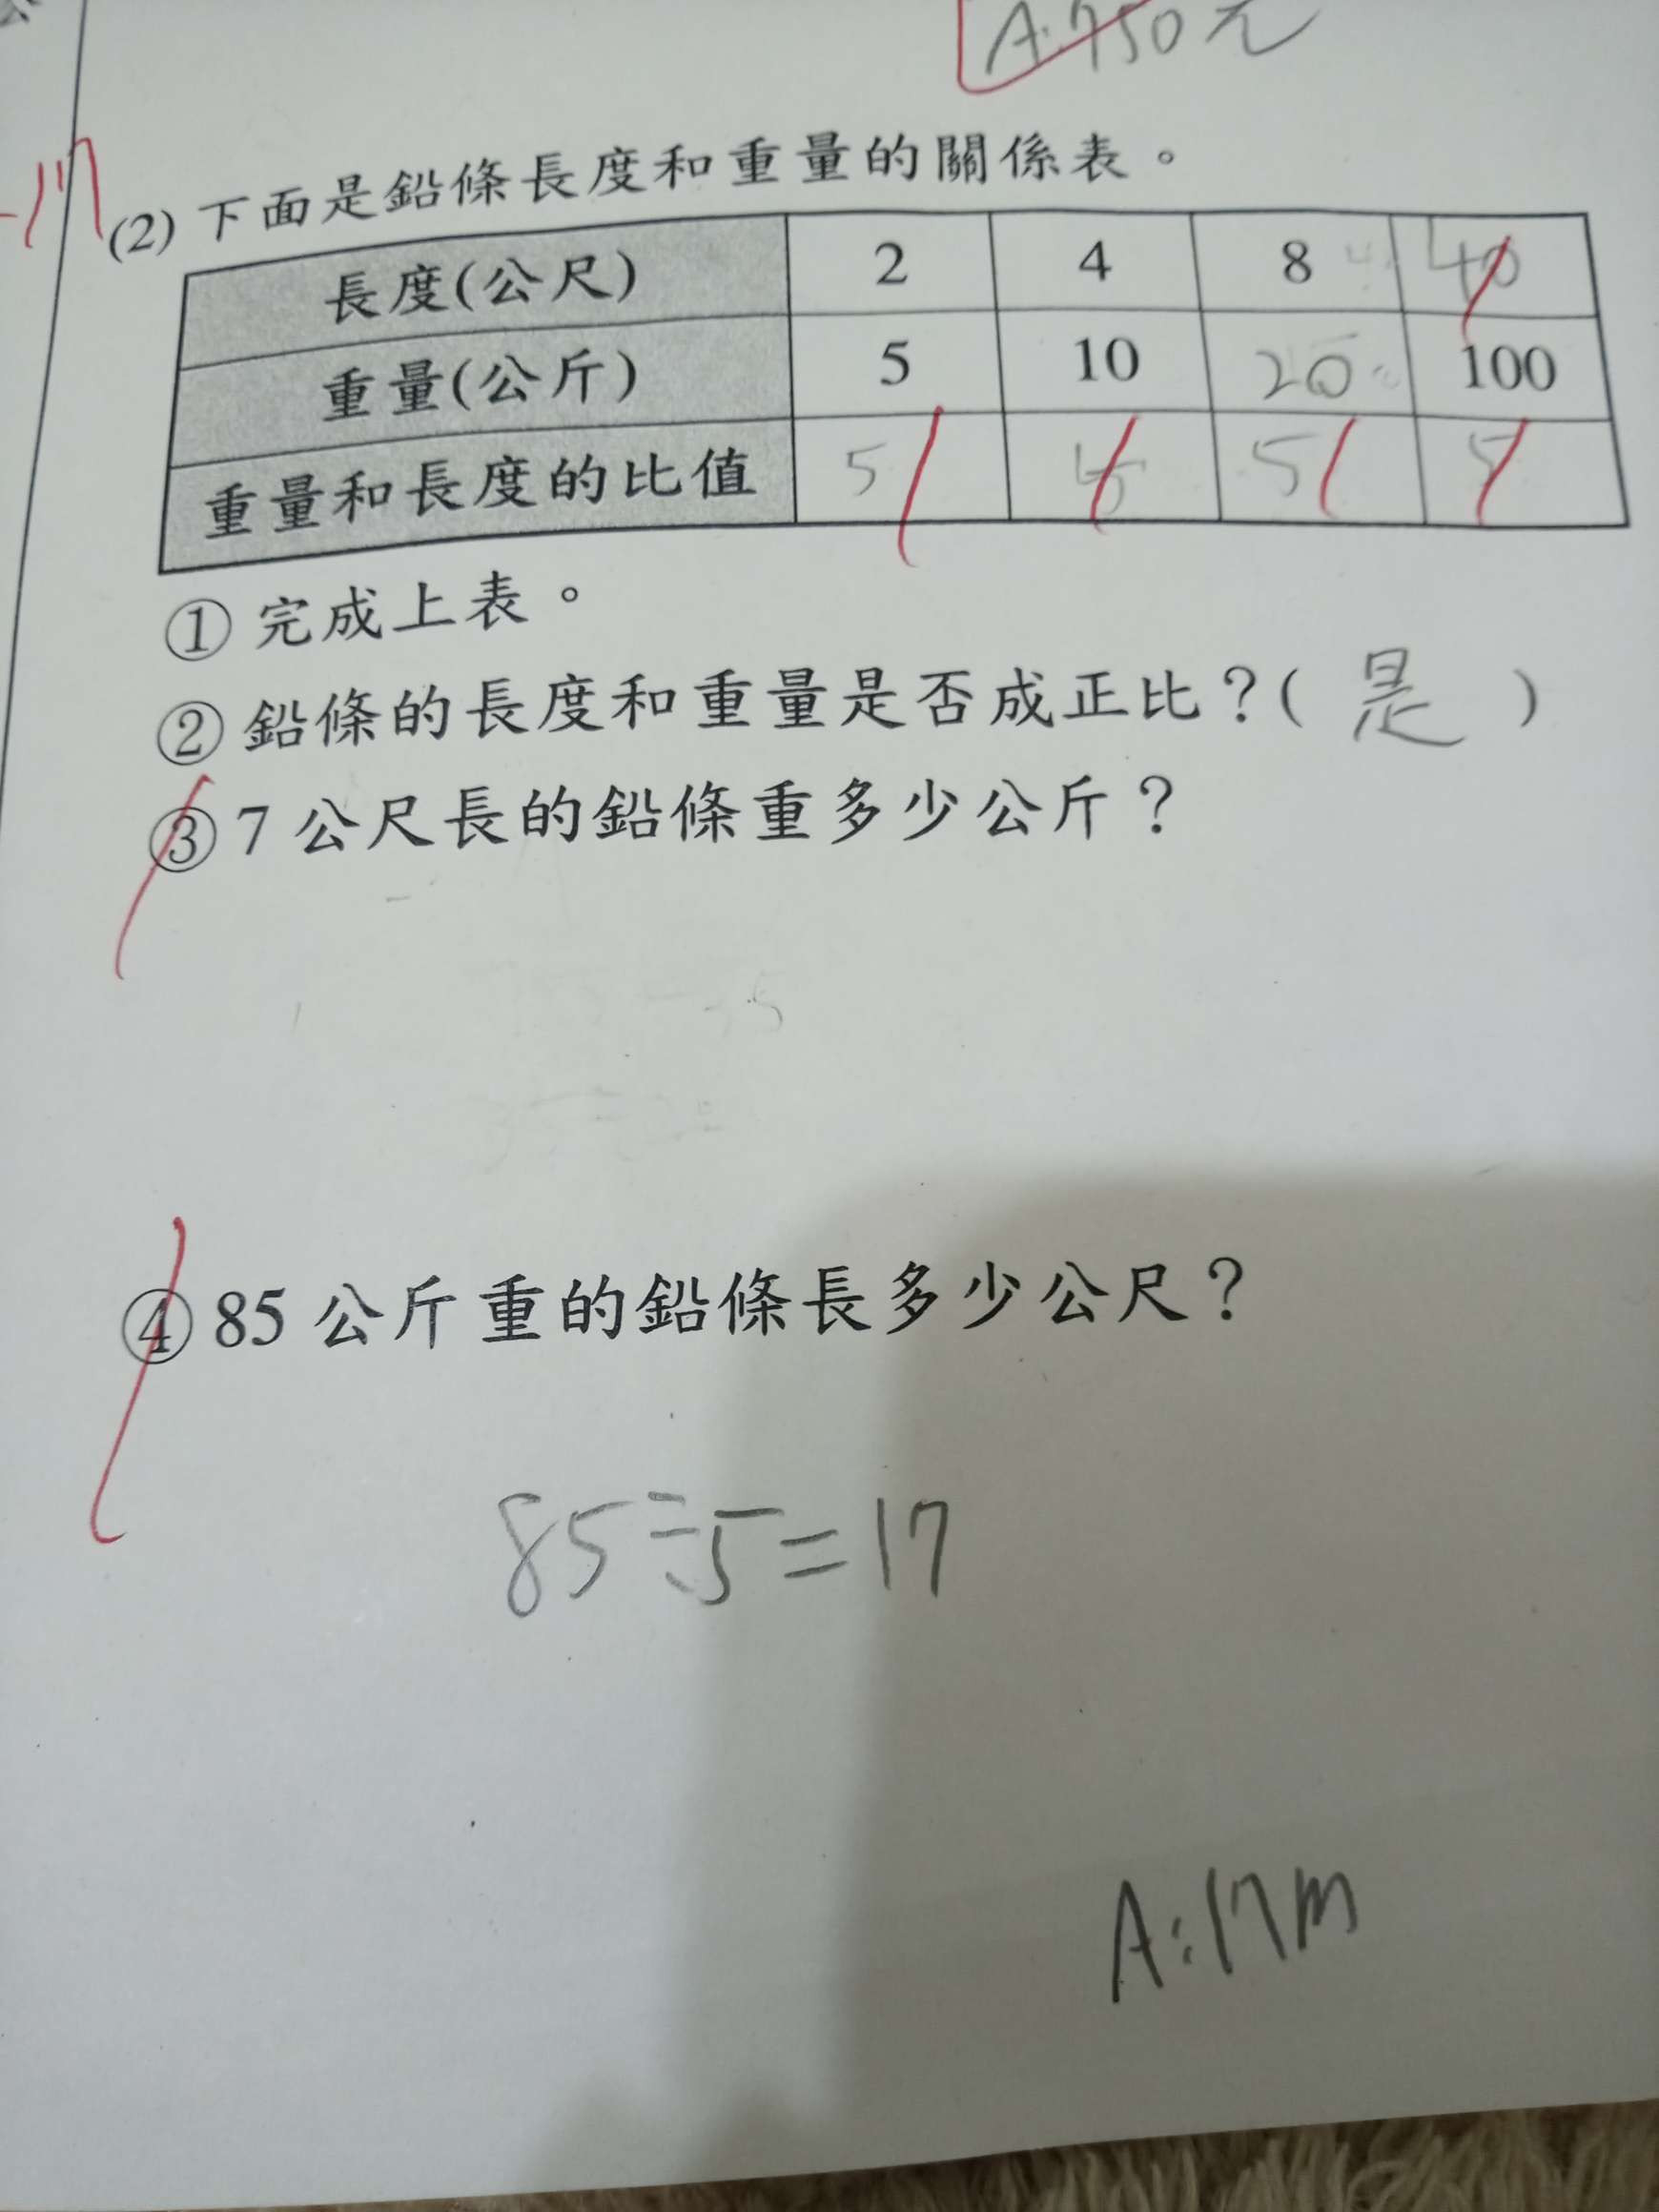 A:750元
(2) 下面是鉛條長度和重量的關係表。
長度(公尺) 2 4 8 40
重量(公斤) 5 10 20 100
重量和長度的比值 5 5 5 5
① 完成上表。
② 鉛條的長度和重量是否成正比？( 是 )
③ 7 公尺長的鉛條重多少公斤？
④ 85 公斤重的鉛條長多少公尺？
85÷5=17
A:17m